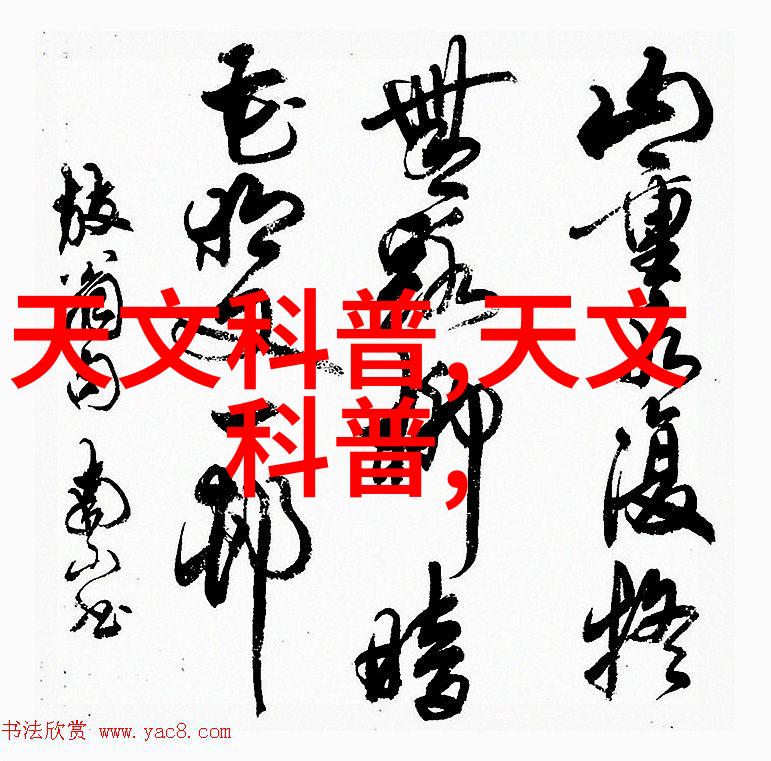 山重水復疑
無路柳暗
花明又一邨
放翁句
天文科普,天文
科普,
书法欣赏 www.yac8.com